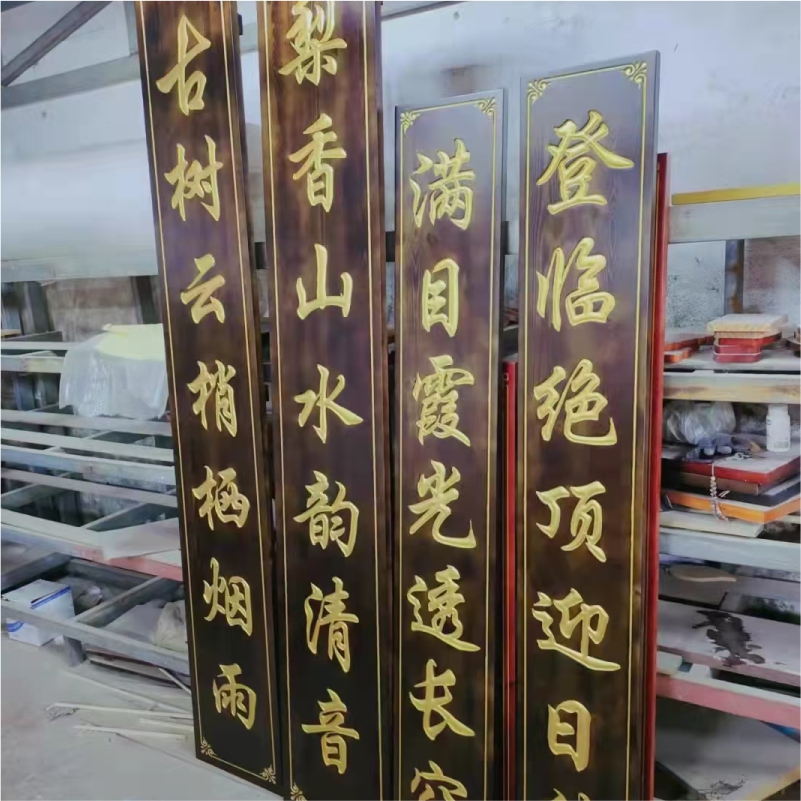 登临绝顶迎日
满目霞光透长空
梨香山水韵清音
古树云梢栖烟雨